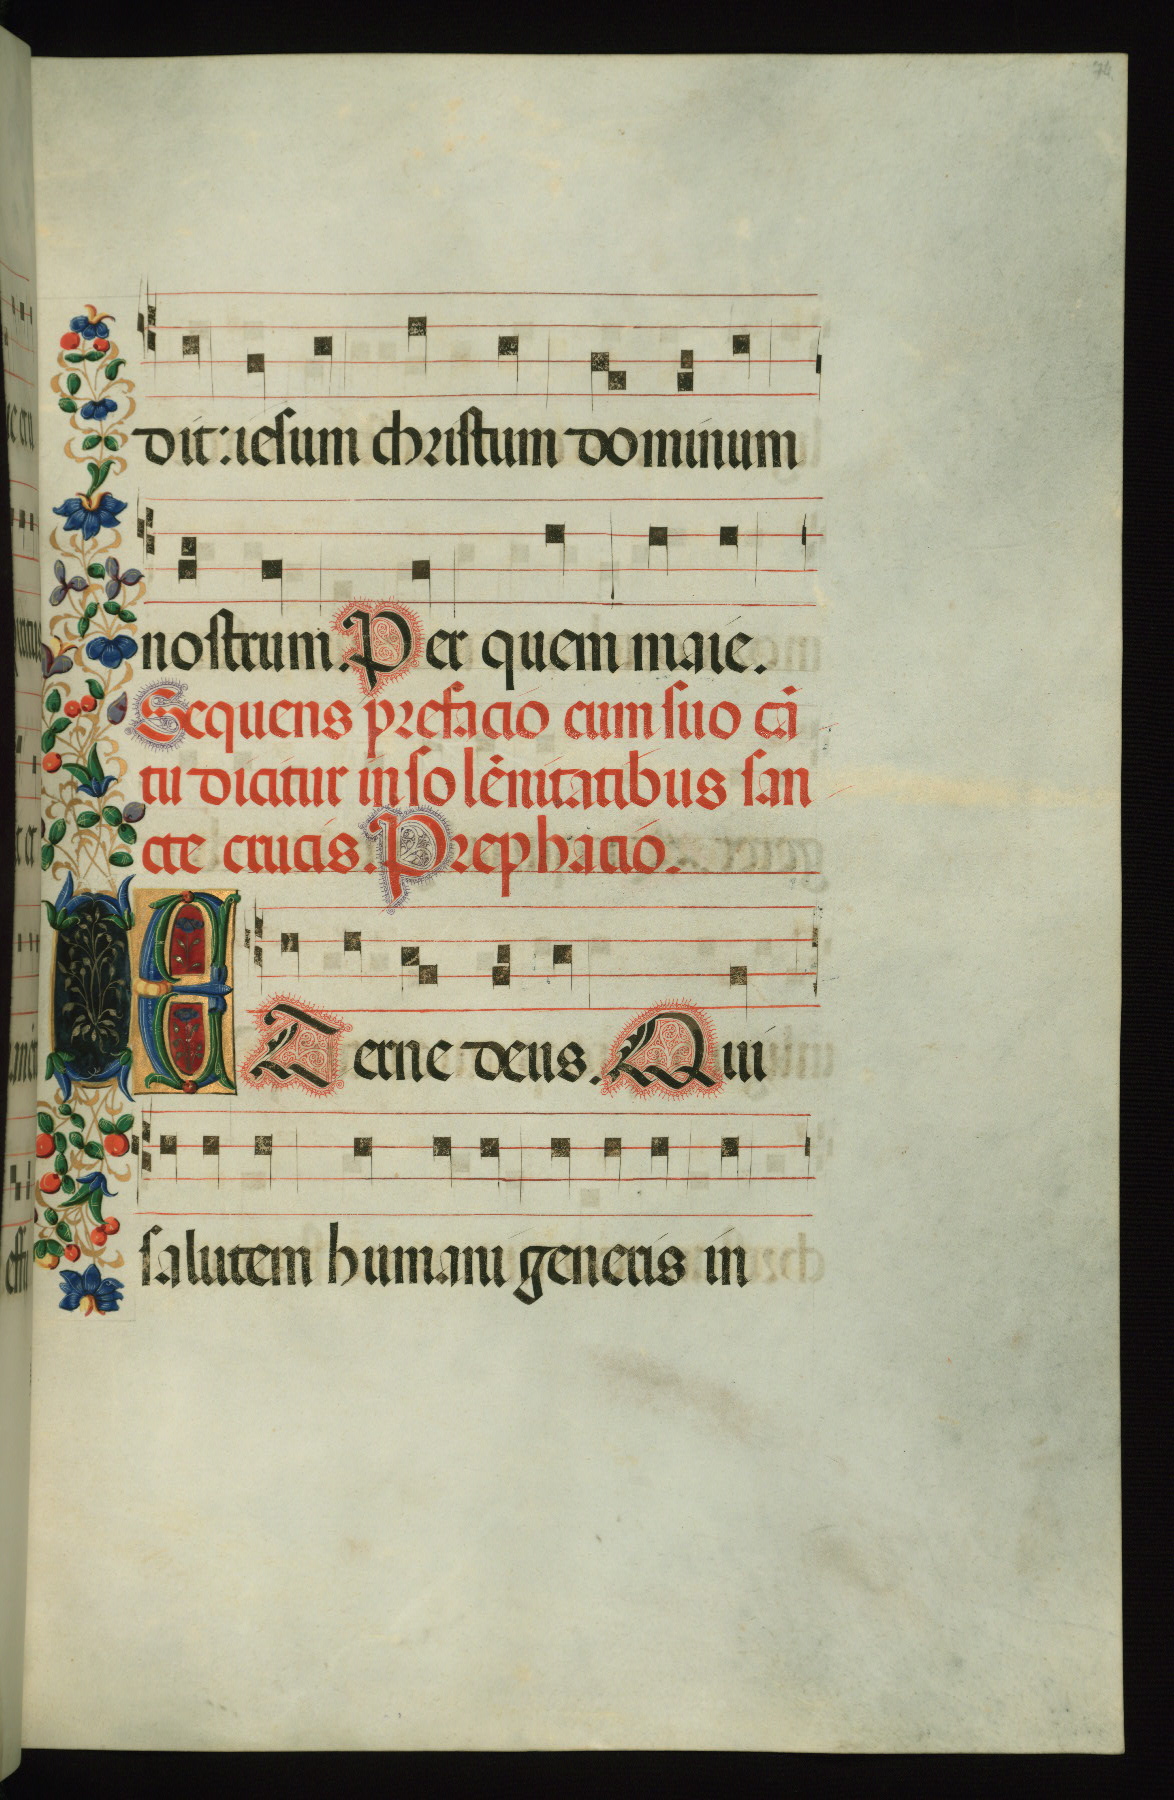 74
dit: iesum christum dominum
nostrum. Per quem maie.
Sequens prefacio cum suo cā
tu dicitur in solēnitatibus san
cte crucis. Prephacio.
ETerne deus. Qui
salutem humani generis in